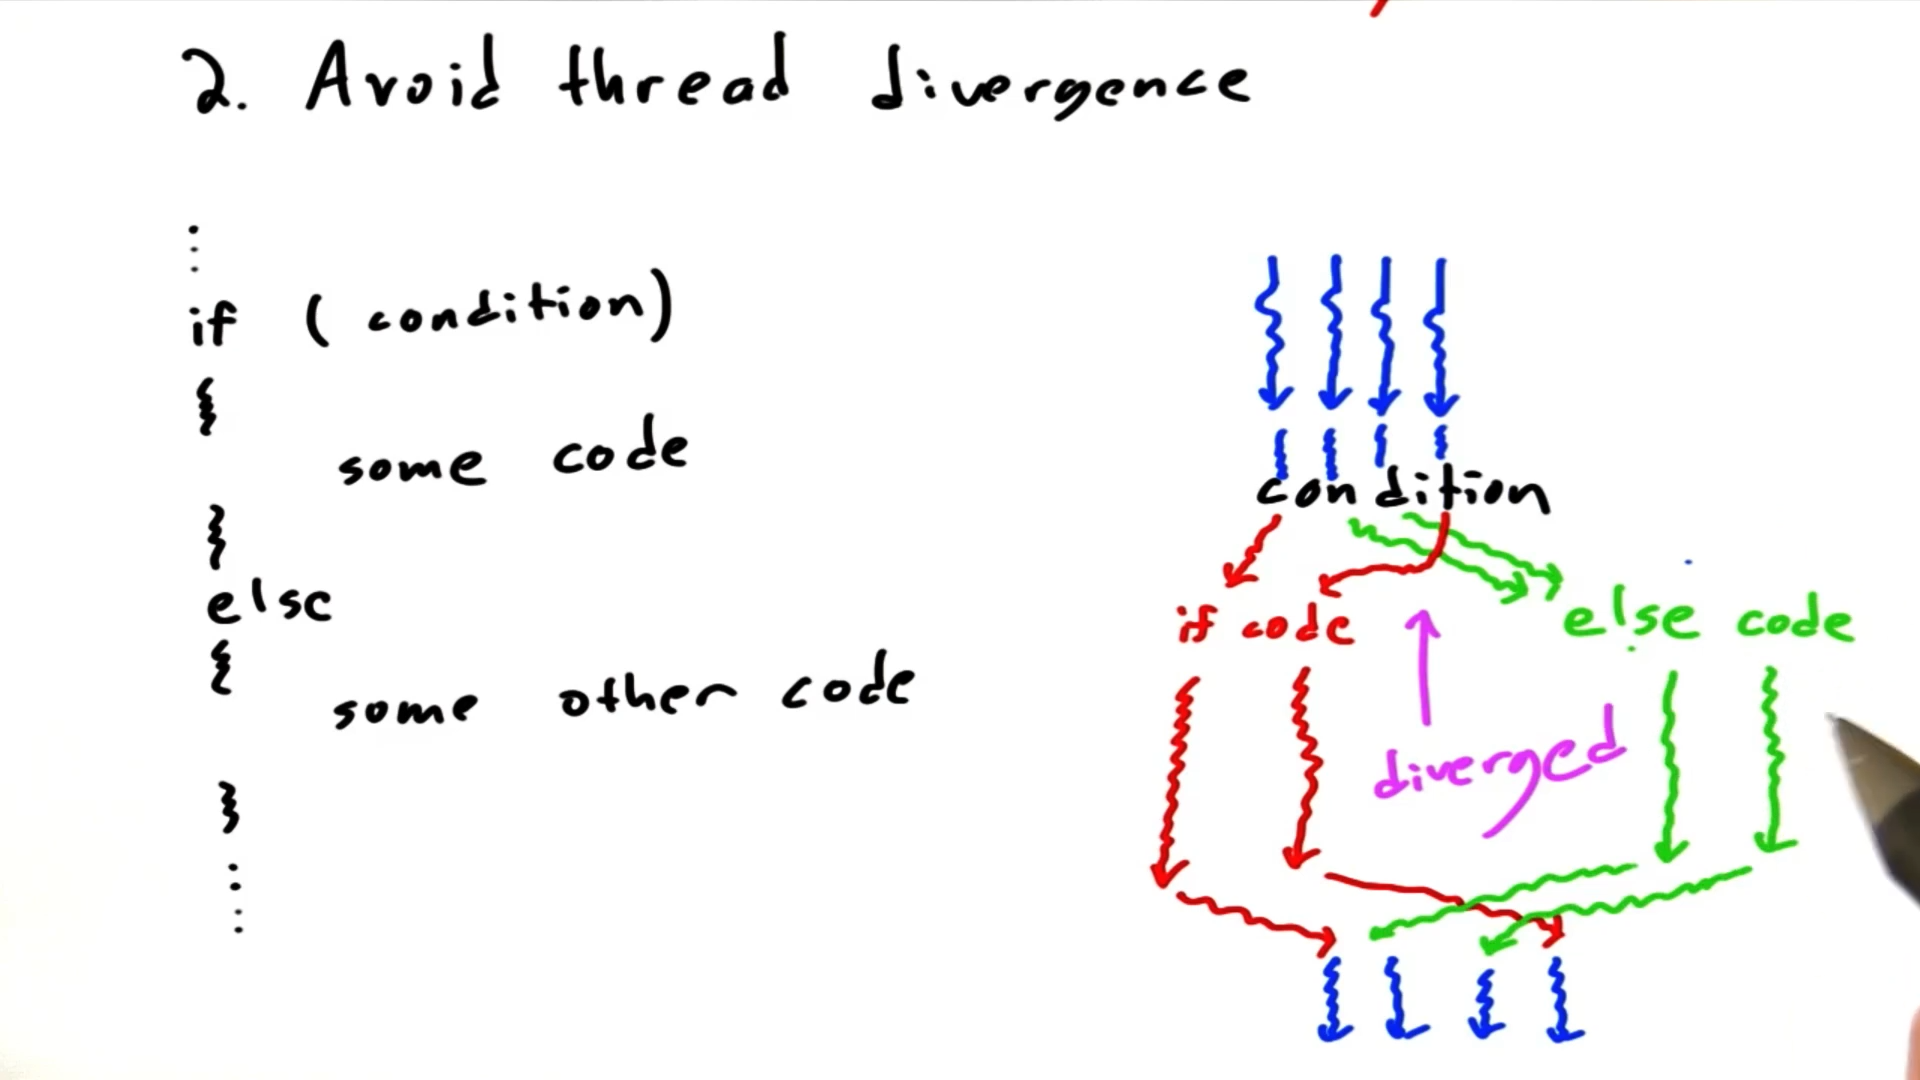 2. Avoid thread divergence
if (condition)
{
some code
}
else
{
some other code
}
condition
if code
else code
diverged